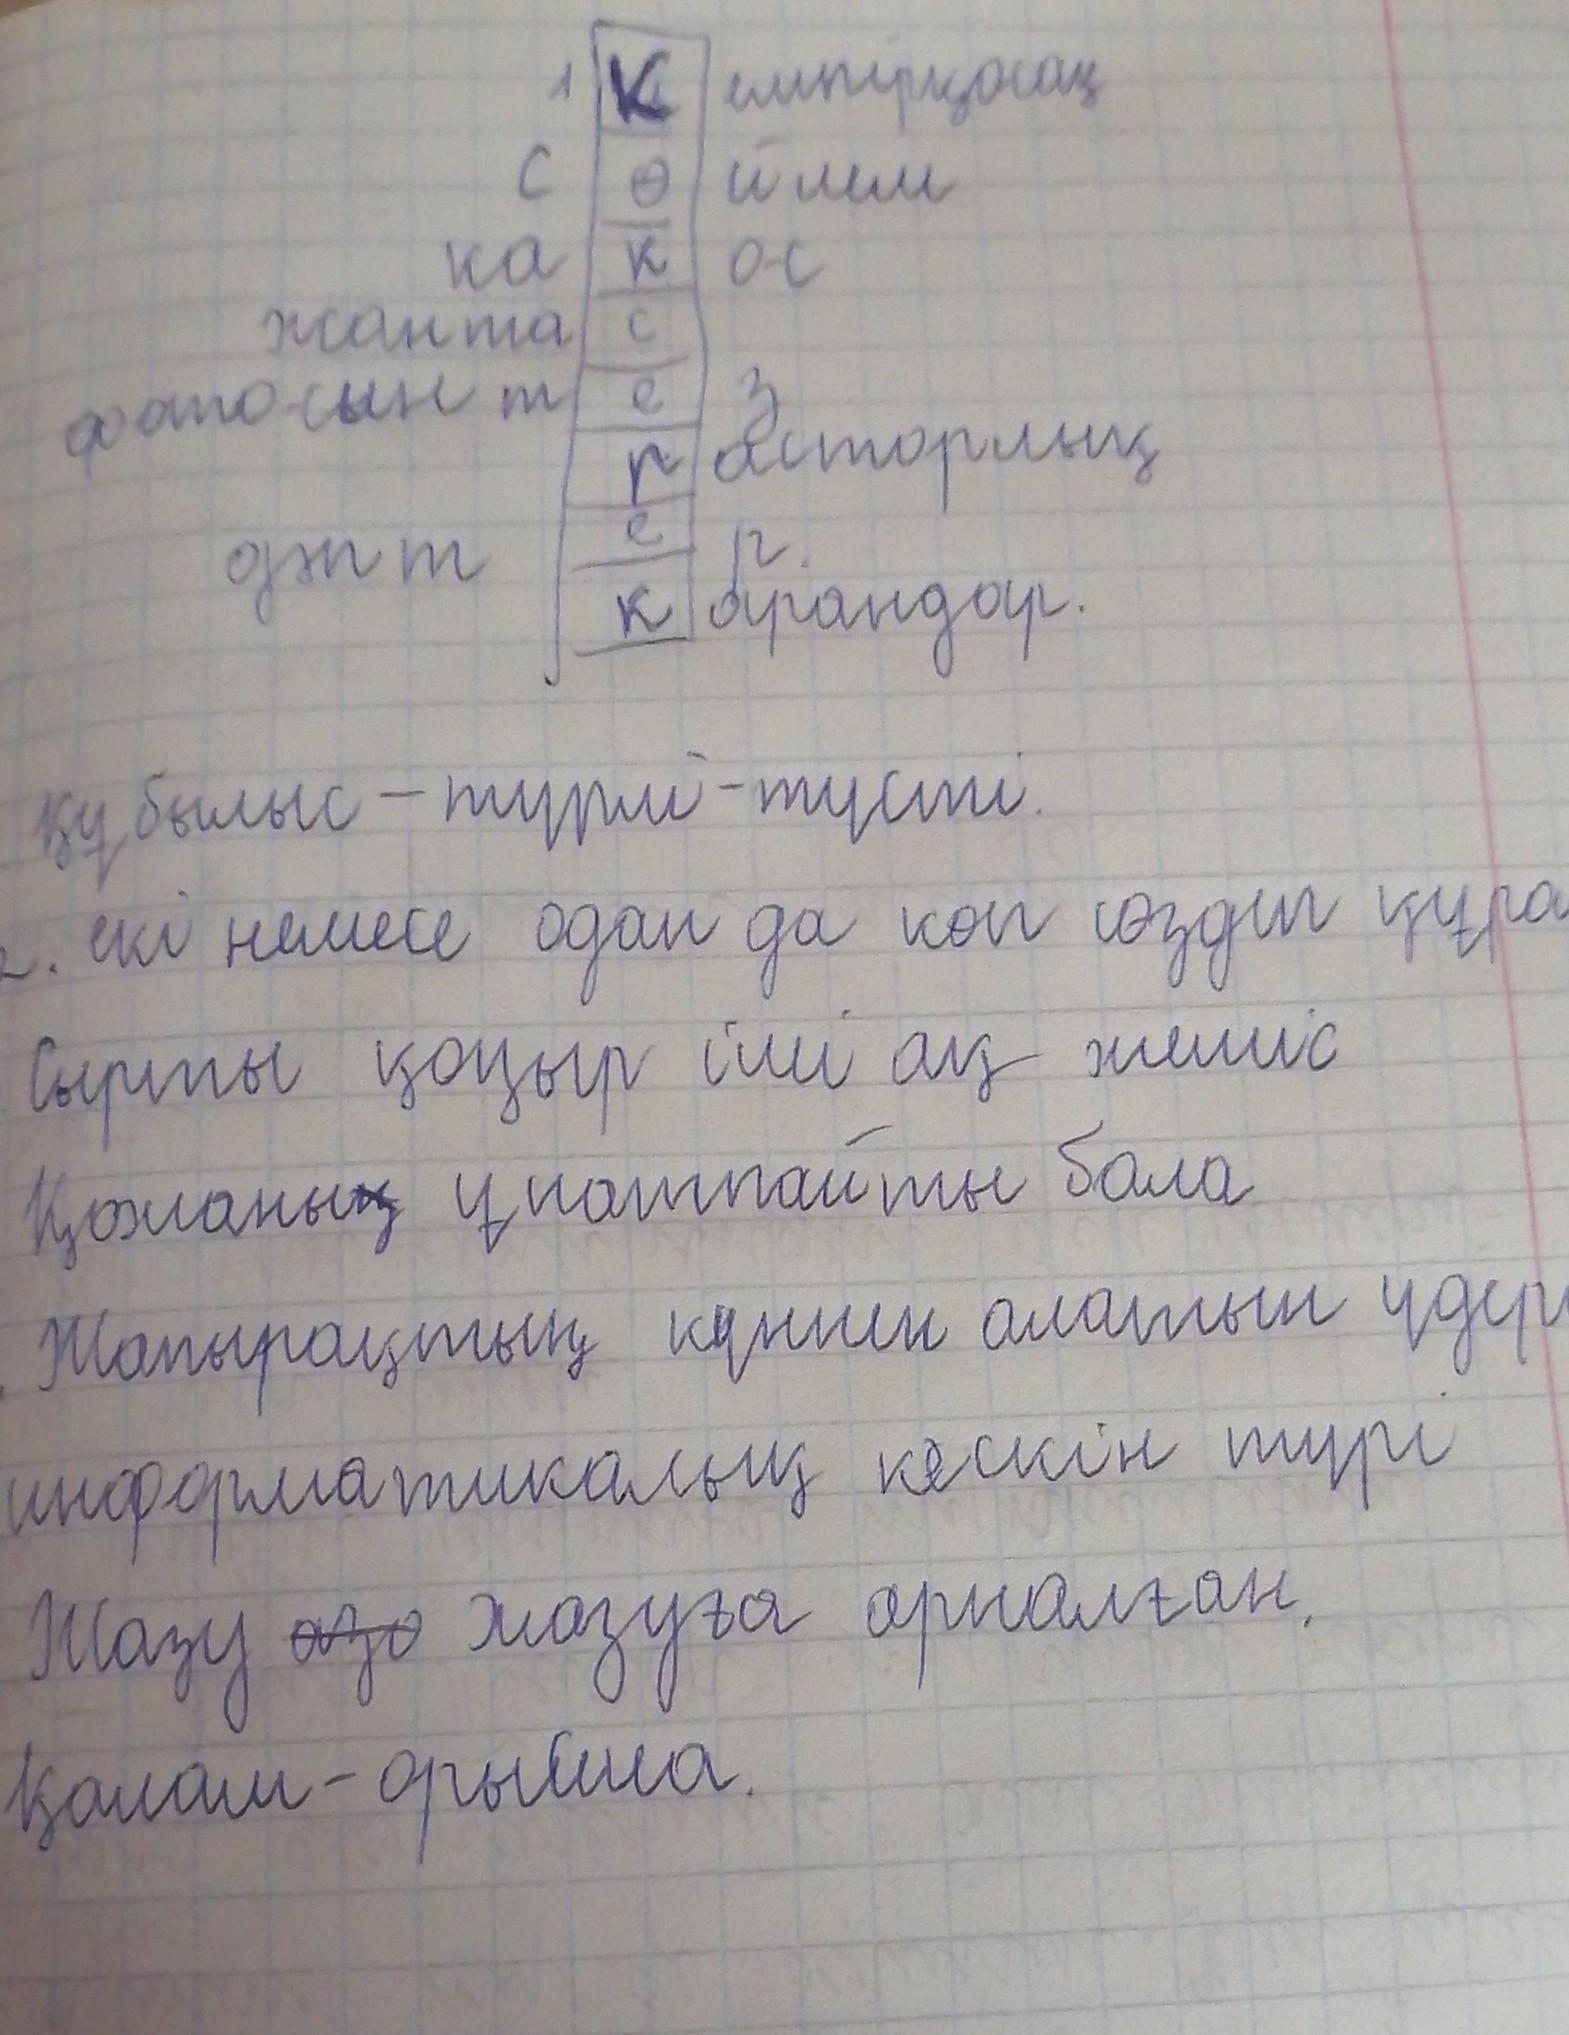 1 К емпірқосақ
с ө йлем
ка к ос
жанта с
фотосынт е з
р асторлық
джпт е р.
к арандар.
құбылыс – түрлі-түсті.
2. екі немесе одан да көп сөздің құра
Сырты қоңыр іші ақ жеміс
Қожаның ұнатпайты бала
Жапырақтың күннен алатын үдер
информатикалық кескін түрі
Жазу жазуға арналған.
Қалам – орысша.